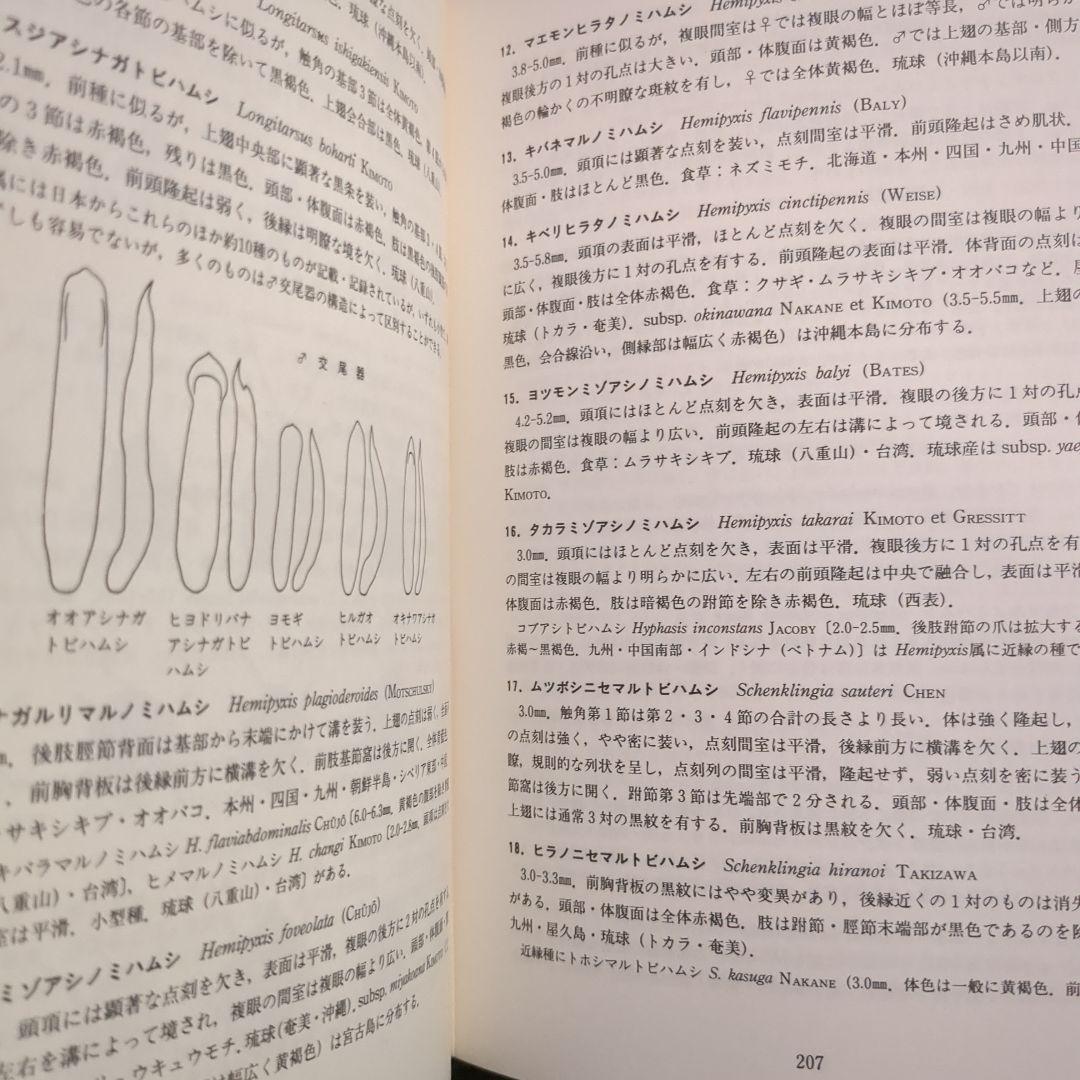 Longitarsus ishigakiensis KIMOTO
の各節の基部を除いて黒褐色．上翅会合部は黒色．琉球（八重山）
スジアシナガトビハムシ Longitarsus boharti KIMOTO
2.1㎜．前種に似るが，上翅中央部に顕著な黒条を装い，触角の基部
の３節は赤褐色，残りは黒色．頭部・体腹面は赤褐色．肢は黒褐色の
除き赤褐色．前頭隆起は弱く，後縁は明瞭な境を欠く．琉球（八重山）．
属には日本からこれらのほか約10種のものが記載・記録されているが，いずれも
しも容易でないが，多くのものは♂交尾器の構造によって区別することができる．
♂ 交 尾 器
オオアシナガ
トビハムシ
ヒヨドリバナ
アシナガトビ
ハムシ
ヨモギ
トビハムシ
ヒルガオ
トビハムシ
オキナワアシナガ
トビハムシ
ナガルリマルノミハムシ Hemipyxis plagioderoides (MOTSCHULSKY)
㎜．後肢脛節背面は基部から末端にかけて溝を装う．上翅の点刻は弱く，
，前胸背板は後縁前方に横溝を欠く．前肢基節窩は後方に開く．
サキシキブ・オオバコ．本州・四国・九州・朝鮮半島・シベリア東部・中国．
キバラマルノミハムシ H. flaviabdominalis CHÛJÔ〔6.0-6.3㎜．黄褐色の腹部を
八重山）・台湾〕，ヒメマルノミハムシ H. changi KIMOTO〔2.0-2.8㎜．
室は平滑．小型種．琉球（八重山）・台湾〕がある．
ミゾアシノミハムシ Hemipyxis foveolata (CHÛJÔ)
頭項には顕著な点刻を欠き，表面は平滑，複眼の後方に２対の孔点を有する．
左右を溝によって境され，複眼の間室は複眼の幅より広い．頭部・体腹面・
ュウキュウモチ．琉球(奄美・沖縄)．subsp. miyakoana KIMOTO
幅広く黄褐色）は宮古島に分布する．
12．マエモンヒラタノミハムシ
3.8-5.0㎜．前種に似るが，複眼間室は♀では複眼の幅とほぼ等長，♂では明らか
複眼後方の１対の孔点は大きい．頭部・体腹面は黄褐色．♂では上翅の基部・側方
褐色の輪かくの不明瞭な斑紋を有し，♀では全体黄褐色．琉球（沖縄本島以南）．
13．キバネマルノミハムシ Hemipyxis flavipennis (BALY)
3.5-5.0㎜．頭項には顕著な点刻を装い，点刻間室は平滑．前頭隆起はさめ肌状．
体腹面・肢はほとんど黒色．食草：ネズミモチ．北海道・本州・四国・九州・中国
14．キベリヒラタノミハムシ Hemipyxis cinctipennis (WEISE)
3.5-5.8㎜．頭項の表面は平滑，ほとんど点刻を欠く．複眼の間室は複眼の幅より
に広く，複眼後方に１対の孔点を有する．前頭隆起の表面は平滑．体背面の点刻は
頭部・体腹面・肢は全体赤褐色．食草：クサギ・ムラサキシキブ・オオバコなど．
琉球（トカラ・奄美）．subsp. okinawana NAKANE et KIMOTO（3.5-5.5㎜．上翅の
黒色，会合線沿い，側縁部は幅広く赤褐色）は沖縄本島に分布する．
15．ヨツモンミゾアシノミハムシ Hemipyxis balyi (BATES)
4.2-5.2㎜．頭項にはほとんど点刻を欠き，表面は平滑．複眼の後方に１対の孔点
複眼の間室は複眼の幅より広い．前頭隆起の左右は溝によって境される．頭部・体
肢は赤褐色．食草：ムラサキシキブ．琉球（八重山）・台湾．琉球産は subsp. yae
KIMOTO．
16．タカラミゾアシノミハムシ Hemipyxis takarai KIMOTO et GRESSITT
3.0㎜．頭項にはほとんど点刻を欠き，表面は平滑．複眼後方に１対の孔点を有
の間室は複眼の幅より明らかに広い．左右の前頭隆起は中央で融合し，表面は平滑
体腹面は赤褐色．肢は暗褐色の跗節を除き赤褐色．琉球（西表）．
コブアシトビハムシ Hyphasis inconstans JACOBY〔2.0-2.5㎜．後肢跗節の爪は拡大する
赤褐～黒褐色．九州・中国南部・インドシナ（ベトナム）〕は Hemipyxis属に近縁の種で
17．ムツボシニセマルトビハムシ Schenklingia sauteri CHEN
3.0㎜．触角第１節は第２・３・４節の合計の長さより長い．体は強く隆起し，
の点刻は強く，やや密に装い，点刻間室は平滑，後縁前方に横溝を欠く．上翅の
瞭，規則的な列状を呈し，点刻列の間室は平滑，隆起せず，弱い点刻を密に装う
節窩は後方に開く．跗節第３節は先端部で２分される．頭部・体腹面・肢は全体
上翅には通常３対の黒紋を有する．前胸背板は黒紋を欠く．琉球・台湾．
18．ヒラノニセマルトビハムシ Schenklingia hiranoi TAKIZAWA
3.0-3.3㎜．前胸背板の黒紋にはやや変異があり，後縁近くの１対のものは消失
がある．頭部・体腹面は全体赤褐色．肢は跗節・脛節末端部が黒色であるのを除
九州・屋久島・琉球（トカラ・奄美）．
近縁種にトホシマルトビハムシ S. kasuga NAKANE（3.0㎜．体色は一般に黄褐色．前
207